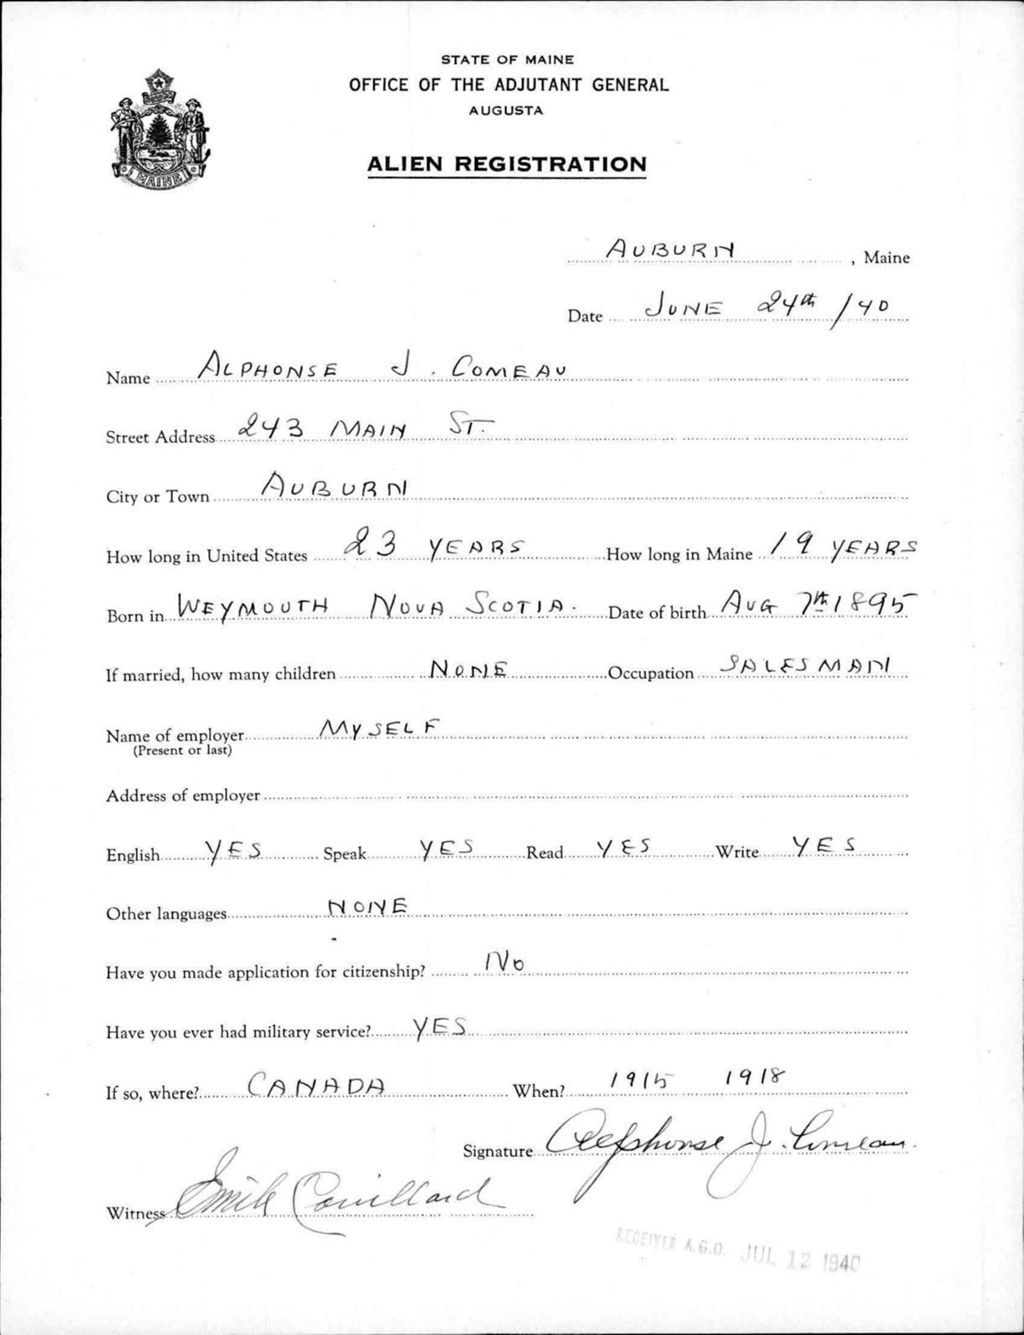 STATE OF MAINE
OFFICE OF THE ADJUTANT GENERAL
AUGUSTA
ALIEN REGISTRATION
MAINE
AUBURN, Maine
Date JUNE 24th /40
Name ALPHONSE J. COMEAU
Street Address 243 MAIN ST.
City or Town AUBURN
How long in United States 23 YEARS How long in Maine 19 YEARS
Born in WEYMOUTH NOVA SCOTIA. Date of birth AUG 7th 1895
If married, how many children NONE Occupation SALESMAN
Name of employer MYSELF
(Present or last)
Address of employer
English YES Speak YES Read YES Write YES
Other languages NONE
Have you made application for citizenship? NO
Have you ever had military service? YES
If so, where? CANADA When? 1915 1918
Signature Alphonse J. Comeau.
Witness Emile Couillard
RECEIVED A.G.O. JUL 12 1940